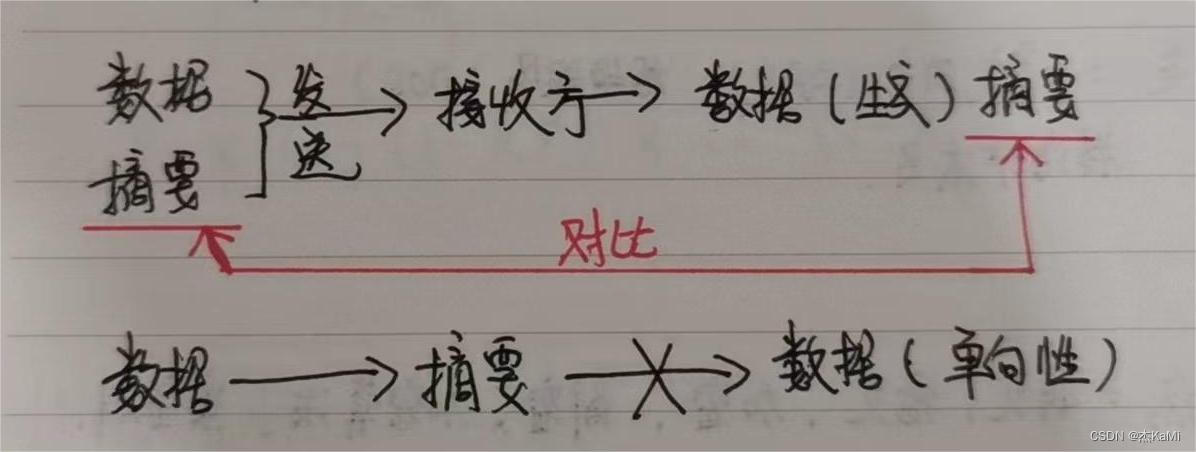 数据 发 → 接收方 → 数据（生成）摘要
摘要 送
对比
数据 → 摘要 → 数据（单向性）
CSDN @杰KaMi